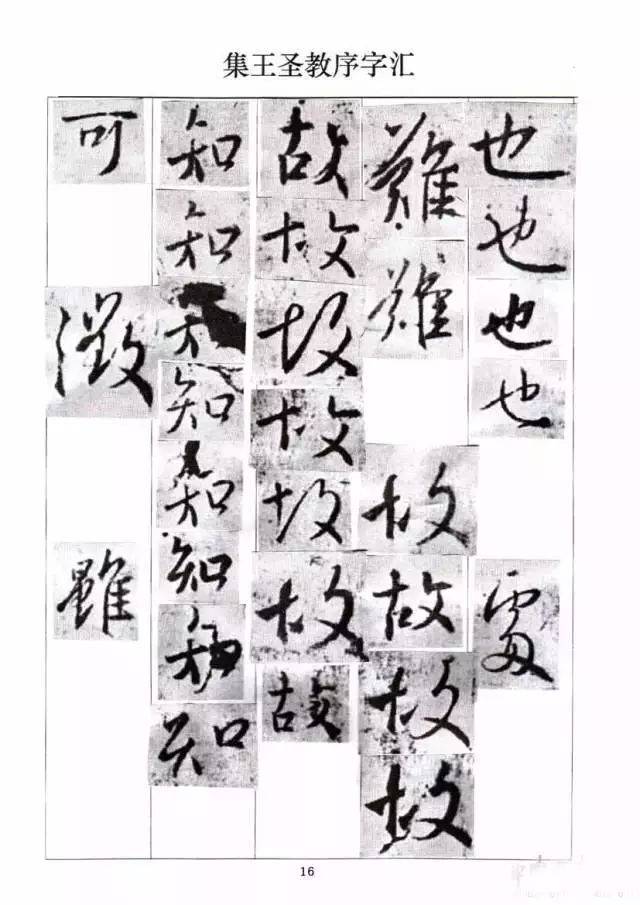 集王圣教序字汇
也也也也處
難難故故故故
故故故故故故故
知知知知知知知知
可徵雖
16